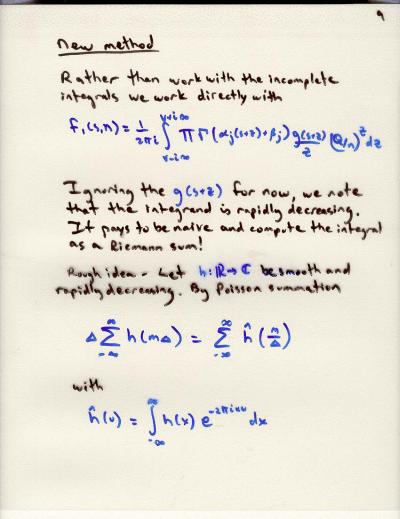 9
new method
Rather than work with the incomplete
integrals we work directly with
f₁(s,n) = 1/2πi ∫_{ν-i∞}^{ν+i∞} ∏ Γ(αⱼ(s+z)+βⱼ) g(s+z)/z (Q/n)^z dz
Ignoring the g(s+z) for now, we note
that the integrand is rapidly decreasing.
It pays to be naive and compute the integral
as a Riemann sum!
Rough idea - Let h: ℝ → ℂ be smooth and
rapidly decreasing. By Poisson summation
Δ ∑_{-∞}^{∞} h(mΔ) = ∑_{-∞}^{∞} ĥ(n/Δ)
with
ĥ(u) = ∫_{-∞}^{∞} h(x) e^{-2πixu} dx